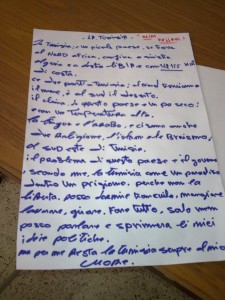 LA TUNISIA
La Tunisia, e un piccolo paese, se trova
al NORD africa, confina a sinistra
algeria e a destra LIBIA e con
di costa.
ce due parti, Tunisia; al nord troviamo
il mare, e al sud il deserto.
il clima, di questo paese e un po seco;
con una Temperatura alta.
la lingua e l'arabo, e ci sono anche
due Religione, l'islam e le Braismo,
al sud est di Tunisi.
il problema di questo paese e il governo
, secondo me, la tunisia come un paradiso
dentro un prigione, perche non la
libertà, posso dormire tranquilo, mangiare
lavorare, girare, Fare tutto, solo non
posso parlare e sprimere li miei
idie politiche.
ma per me Resta la tunisia sempre il mio
AMORE.